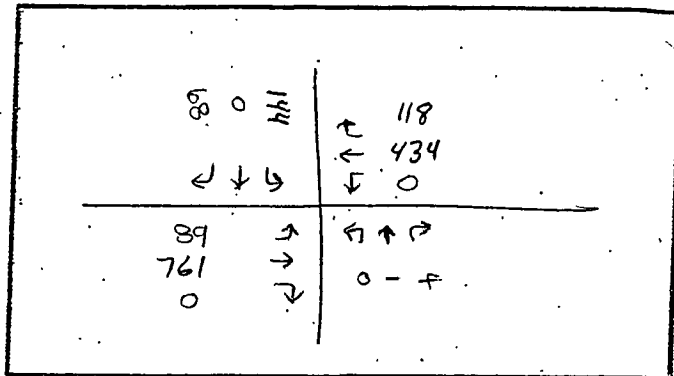 68 0 144
118
434
0
89
761
0
0 - +